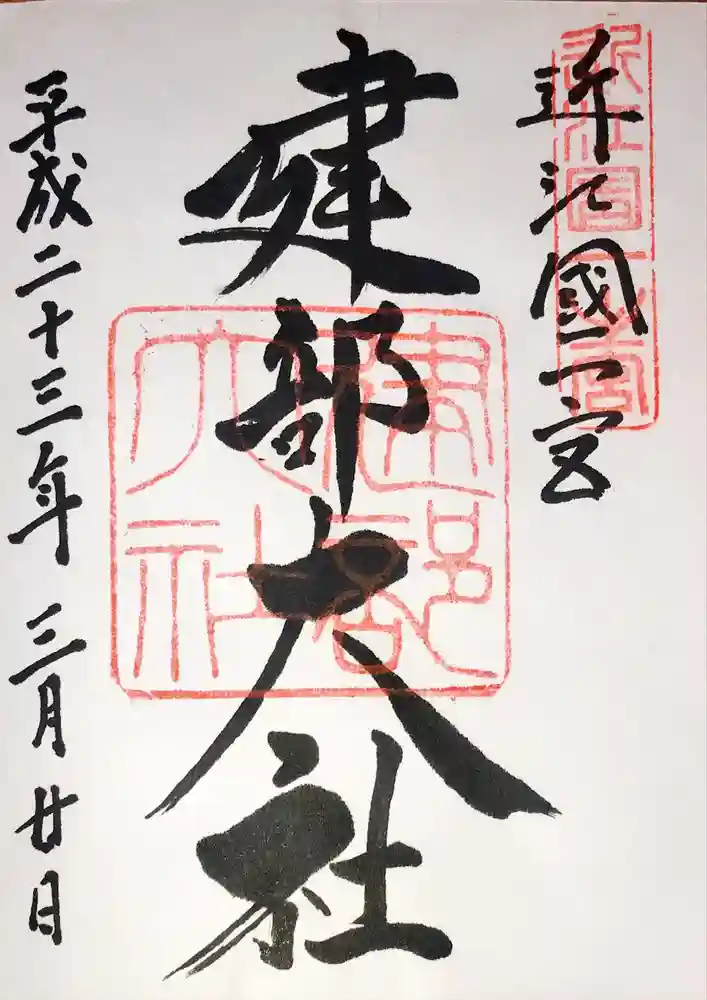 近江國一宮
近江国一宮
建部大社
建部大社
平成二十三年 三月廿日